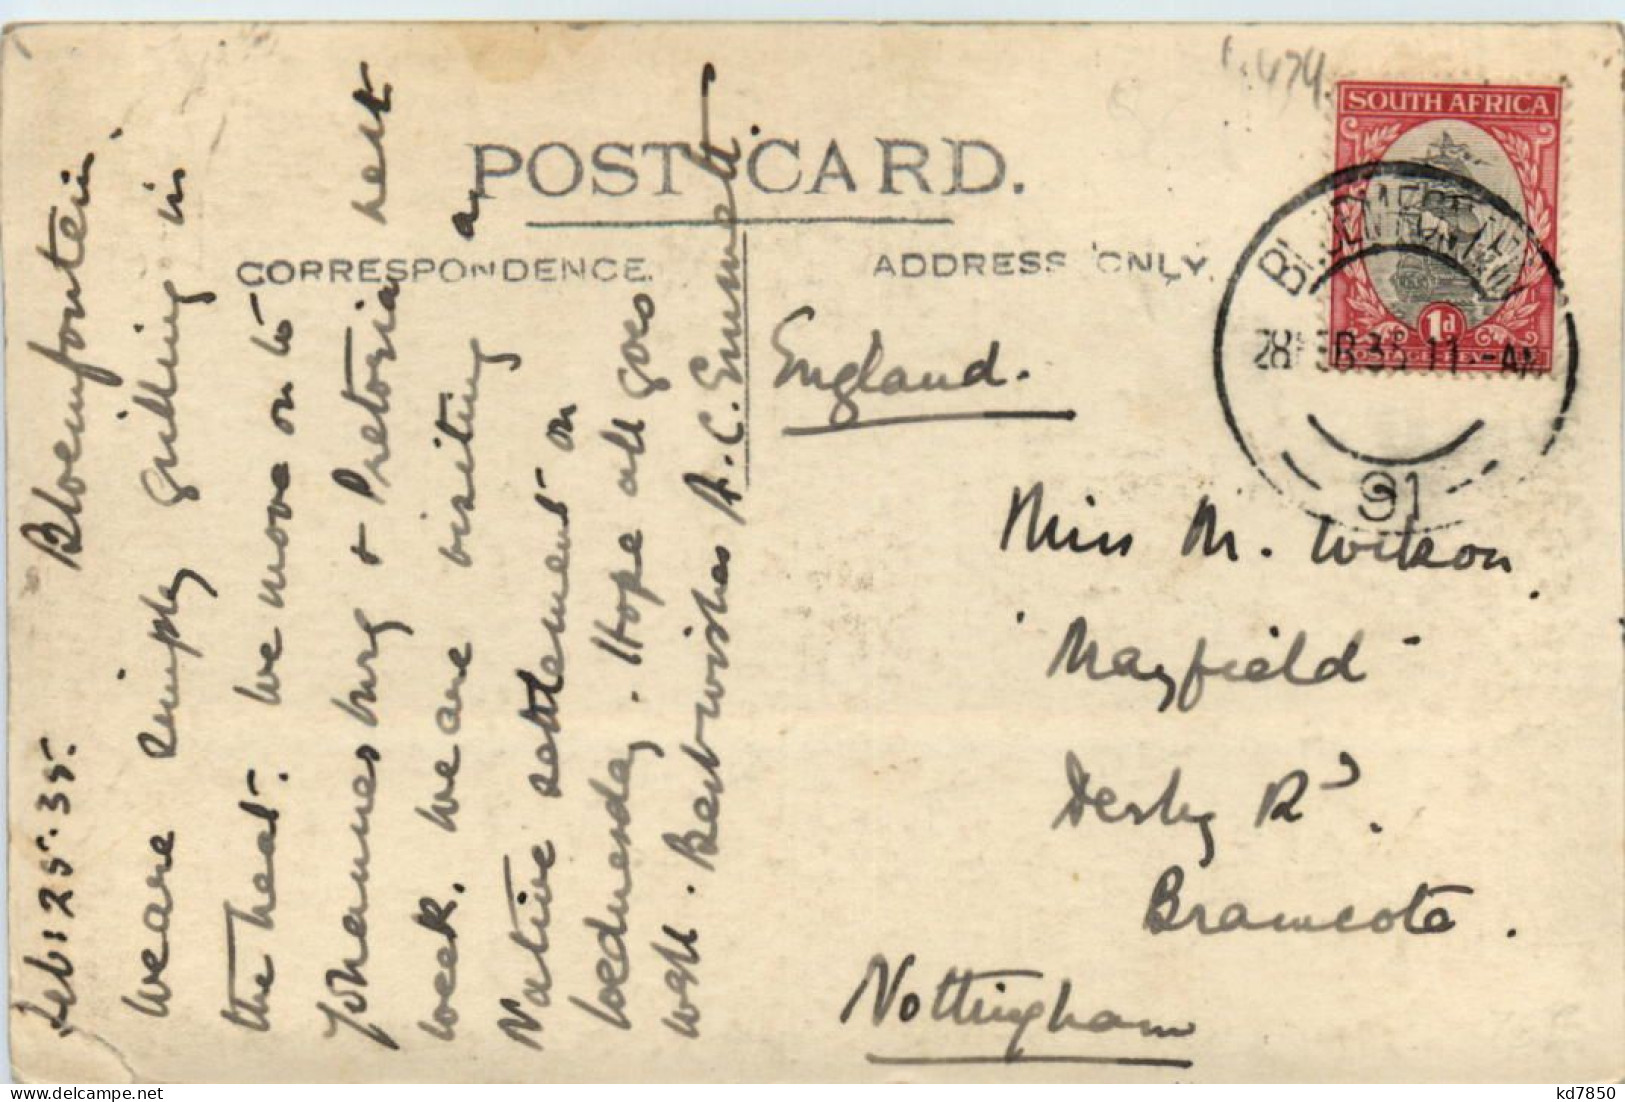 POST CARD.
CORRESPONDENCE.
ADDRESS ONLY.
SOUTH AFRICA
1d
28 FEB 35 11 - AM
91
Feb: 25. 35. Bloemfontein.
We are simply grilling in
the heat. We move on to
Johannesburg & Pretoria next
week. We are visiting a
Native settlement on
Wednesday. Hope all goes
well. Best wishes A. C. Emmett.
England.
Miss M. Wilson
"Mayfield"
Derby Rd.
Bramcote.
Nottingham
kd7850